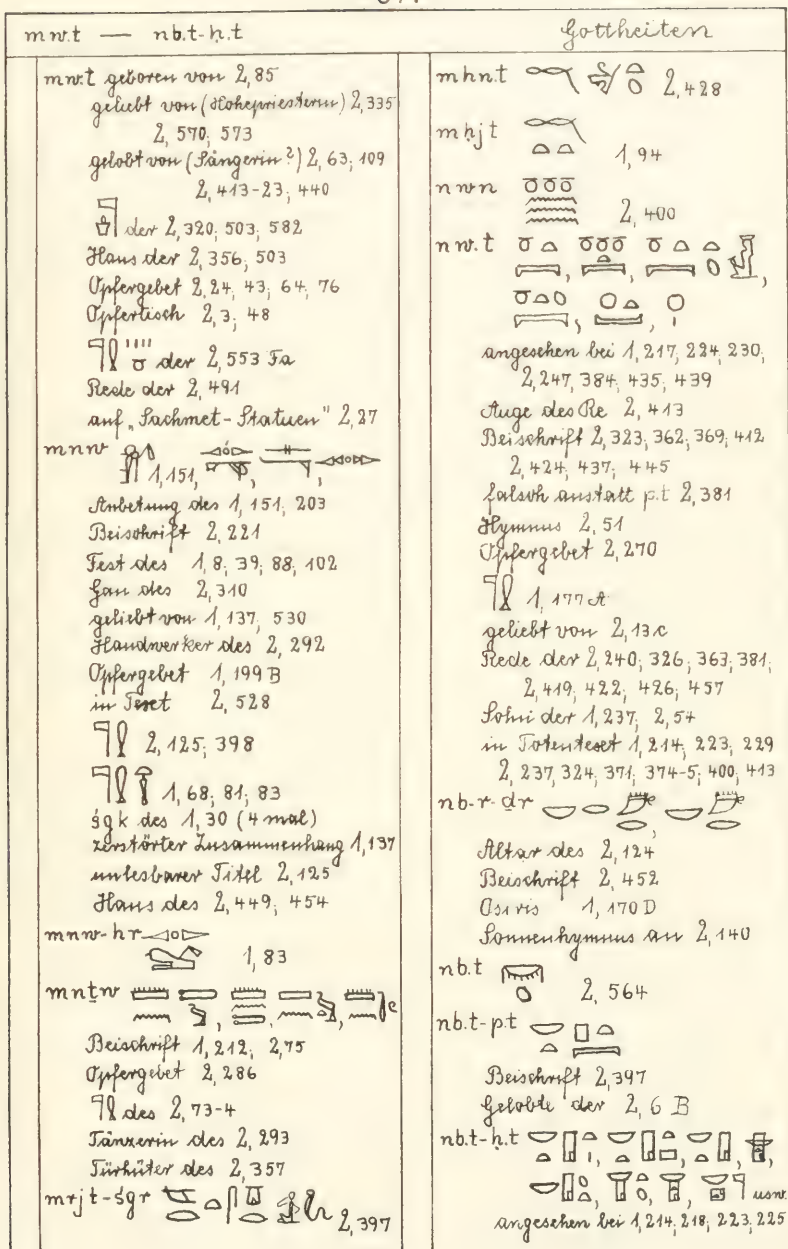 mw.t — nb.t-ḥ.t
Gottheiten
mw.t geboren von 2,85
geliebt von (Hohepriesterin) 2,335
2, 570; 573
gelobt von (Sängerin?) 2, 63; 109
2, 413-23; 440
der 2, 320; 503; 582
Haus der 2, 356; 503
Opfergebet 2, 24; 43; 64; 76
Opfertisch 2, 3; 48
der 2, 553 Fa
Rede der 2, 491
auf „Sachmet-Statuen" 2, 27
mnw 1, 151,
Anbetung des 1, 151; 203
Beischrift 2, 221
Fest des 1, 8; 39; 88; 102
Gau des 2, 310
geliebt von 1, 137; 530
Handwerker des 2, 292
Opfergebet 1, 199 B
in 2, 528
2, 125; 398
1, 68; 81; 83
śgk des 1, 30 (4 mal)
zerstörter Zusammenhang 1, 137
unlesbarer Titel 2, 125
Haus des 2, 449; 454
mnw-hr 1, 83
mnṯw
Beischrift 1, 212; 2, 75
Opfergebet 2, 286
des 2, 73-4
Tänzerin des 2, 293
Türhüter des 2, 357
mrjt-śgr 2, 397
mhn.t 2, 428
mḥjt 1, 94
nwn 2, 400
nw.t
angesehen bei 1, 217; 224; 230;
2, 247; 384; 435; 439
Auge des Re 2, 413
Beischrift 2, 323; 362; 369; 412
2, 424; 437; 445
falsch anstatt p.t 2, 381
Hymnus 2, 51
Opfergebet 2, 270
1, 177 A
geliebt von 2, 13 c
Rede der 2, 240; 326; 363; 381;
2, 419; 422; 426; 457
Sohn der 1, 237; 2, 54
in Totentext 1, 214; 223; 229
2, 237; 324; 371; 374-5; 400; 413
nb-r-ḏr
Altar des 2, 124
Beischrift 2, 452
Osiris 1, 170 D
Sonnenhymnus an 2, 140
nb.t 2, 564
nb.t-p.t
Beischrift 2, 397
Gelobte der 2, 6 B
nb.t-ḥ.t usw.
angesehen bei 1, 214; 218; 223; 225